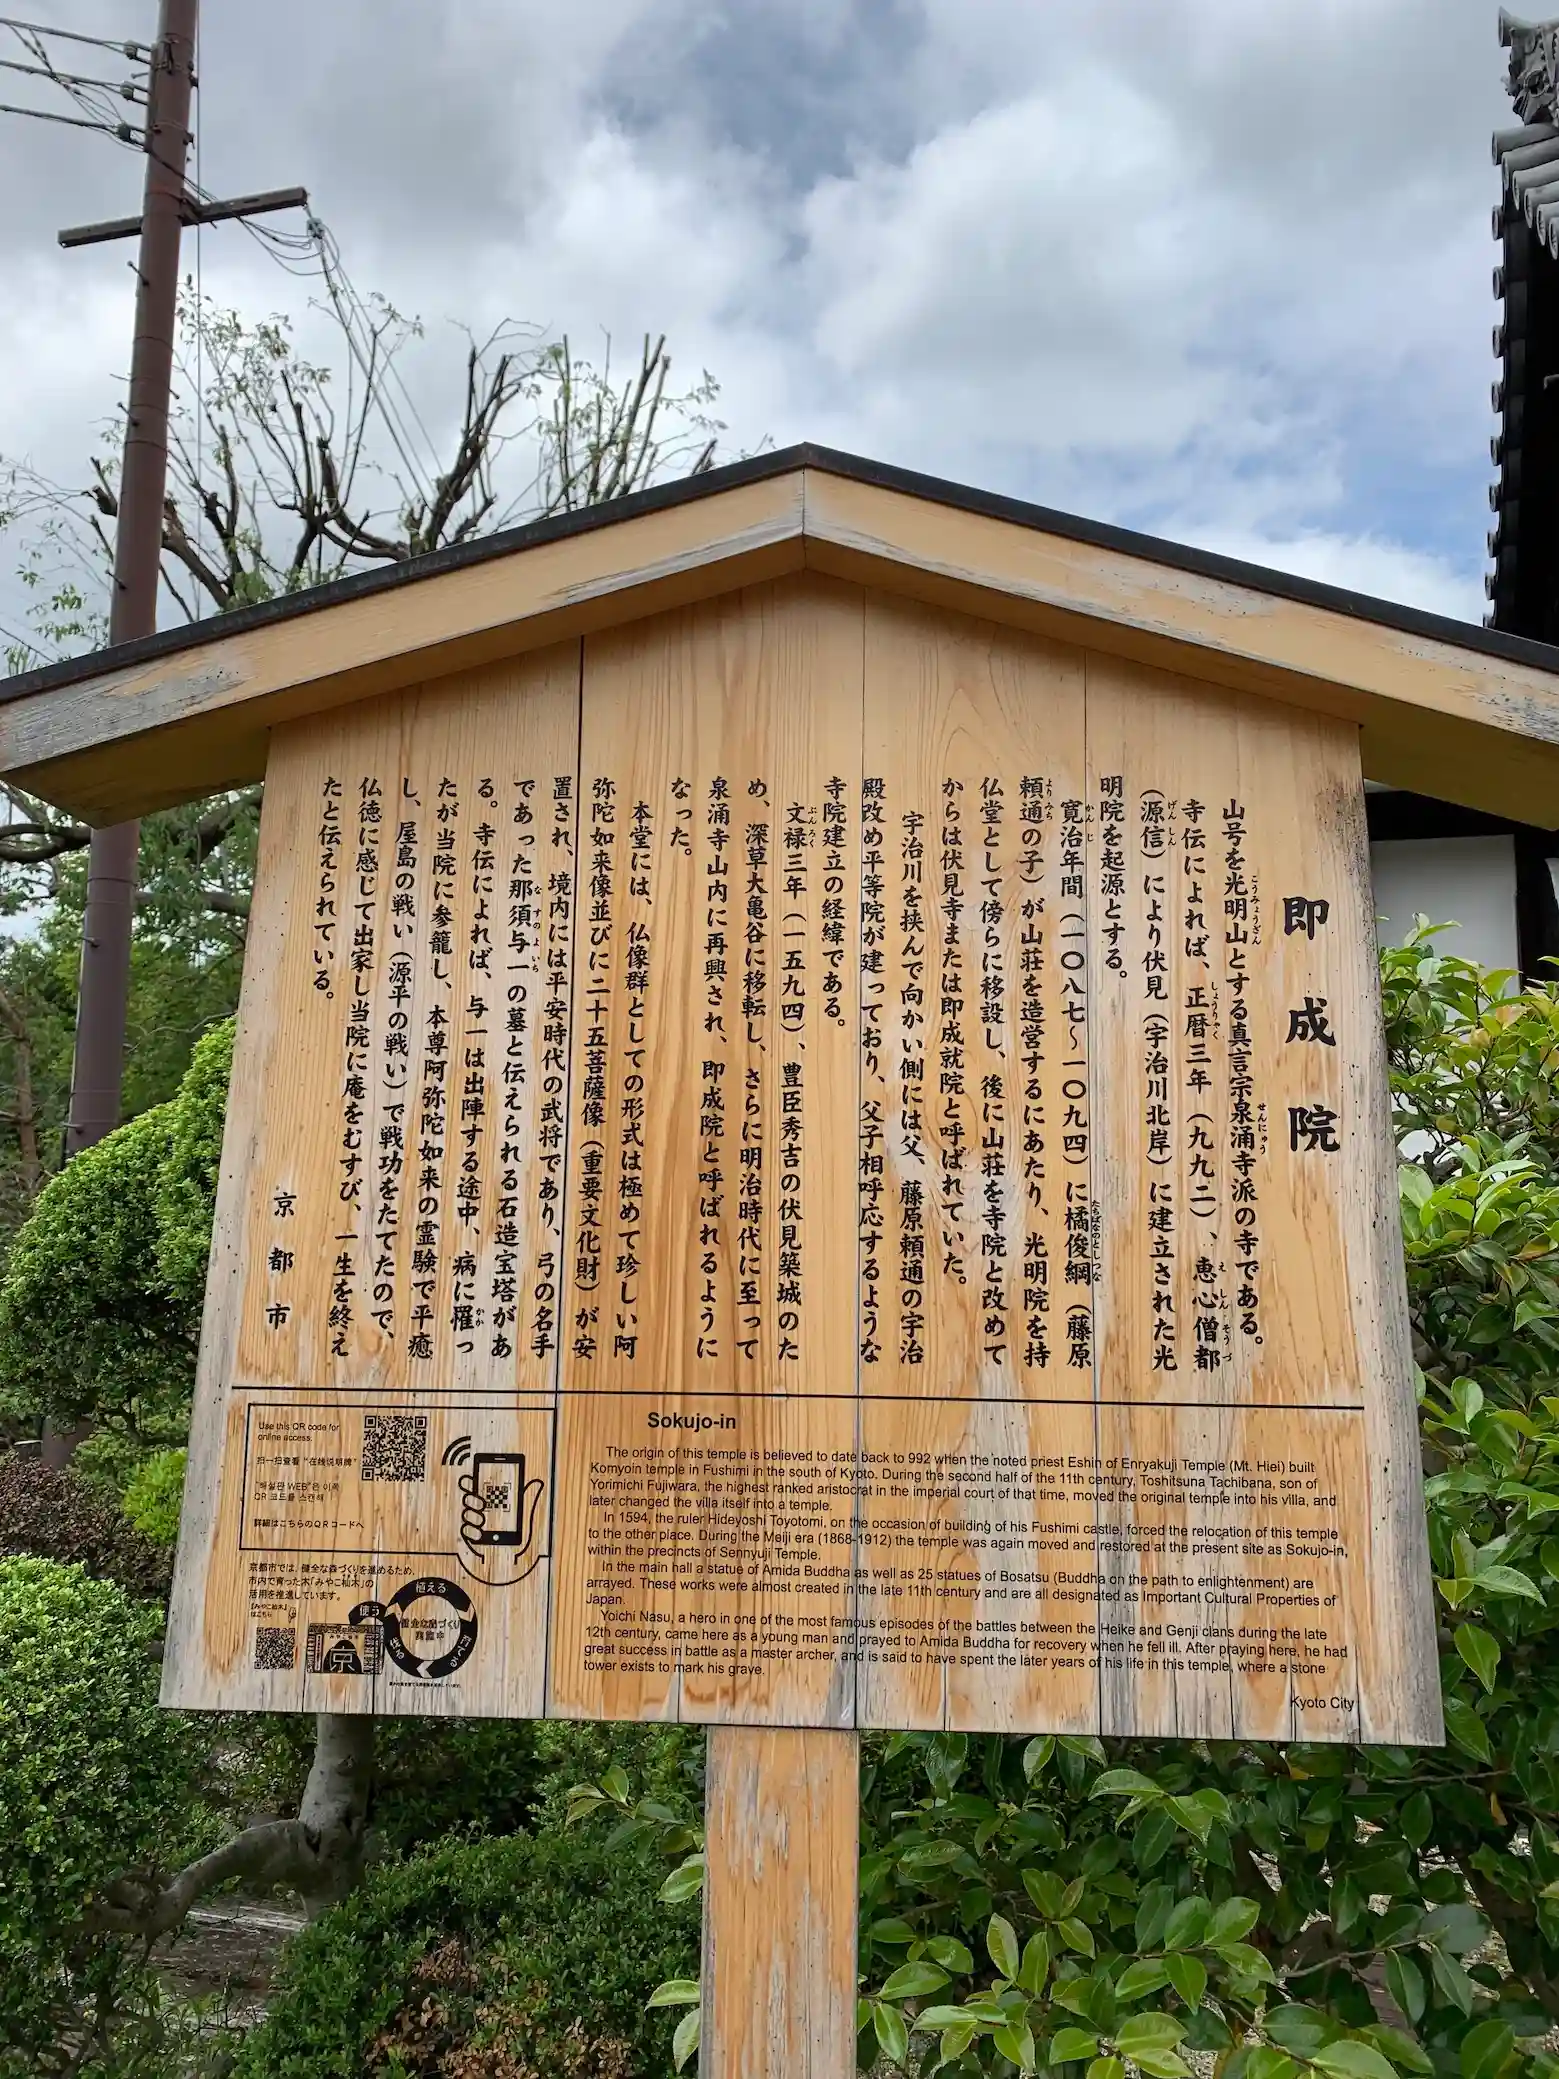 即成院
山号を光明山とする真言宗泉涌寺派の寺である。
寺伝によれば、正暦三年(九九二)、恵心僧都
(源信)により伏見(宇治川北岸)に建立された光
明院を起源とする。
寛治年間(一〇八七〜一〇九四)に橘俊綱(藤原
頼通の子)が山荘を造営するにあたり、光明院を持
仏堂として傍らに移設し、後に山荘を寺院と改めて
からは伏見寺または即成就院と呼ばれていた。
宇治川を挟んで向かい側には父、藤原頼通の宇治
殿改め平等院が建っており、父子相呼応するような
寺院建立の経緯である。
文禄三年(一五九四)、豊臣秀吉の伏見築城のた
め、深草大亀谷に移転し、さらに明治時代に至って
泉涌寺山内に再興され、即成院と呼ばれるように
なった。
本堂には、仏像群としての形式は極めて珍しい阿
弥陀如来像並びに二十五菩薩像(重要文化財)が安
置され、境内には平安時代の武将であり、弓の名手
であった那須与一の墓と伝えられる石造宝塔があ
る。寺伝によれば、与一は出陣する途中、病に罹っ
たが当院に参籠し、本尊阿弥陀如来の霊験で平癒
し、屋島の戦い(源平の戦い)で戦功をたてたので、
仏徳に感じて出家し当院に庵をむすび、一生を終え
たと伝えられている。
京都市
Use this QR code for
online access.
扫一扫查看“在线说明牌”
“해설판 WEB”은 이쪽
QR 코드를 스캔해
詳細はこちらのQRコードへ
京都市では、健全な森づくりを進めるため、
市内で育った木「みやこ杣木」の
活用を推進しています。
『みやこ杣木』
はこちら
みやこ杣木
京
植える
使う
Sokujo-in
The origin of this temple is believed to date back to 992 when the noted priest Eshin of Enryakuji Temple (Mt. Hiei) built
Komyoin temple in Fushimi in the south of Kyoto. During the second half of the 11th century, Toshitsuna Tachibana, son of
Yorimichi Fujiwara, the highest ranked aristocrat in the imperial court of that time, moved the original temple into his villa, and
later changed the villa itself into a temple.
In 1594, the ruler Hideyoshi Toyotomi, on the occasion of building of his Fushimi castle, forced the relocation of this temple
to the other place. During the Meiji era (1868-1912) the temple was again moved and restored at the present site as Sokujo-in,
within the precincts of Sennyuji Temple.
In the main hall a statue of Amida Buddha as well as 25 statues of Bosatsu (Buddha on the path to enlightenment) are
arrayed. These works were almost created in the late 11th century and are all designated as Important Cultural Properties of
Japan.
Yoichi Nasu, a hero in one of the most famous episodes of the battles between the Heike and Genji clans during the late
12th century, came here as a young man and prayed to Amida Buddha for recovery when he fell ill. After praying here, he had
great success in battle as a master archer, and is said to have spent the later years of his life in this temple, where a stone
tower exists to mark his grave.
Kyoto City